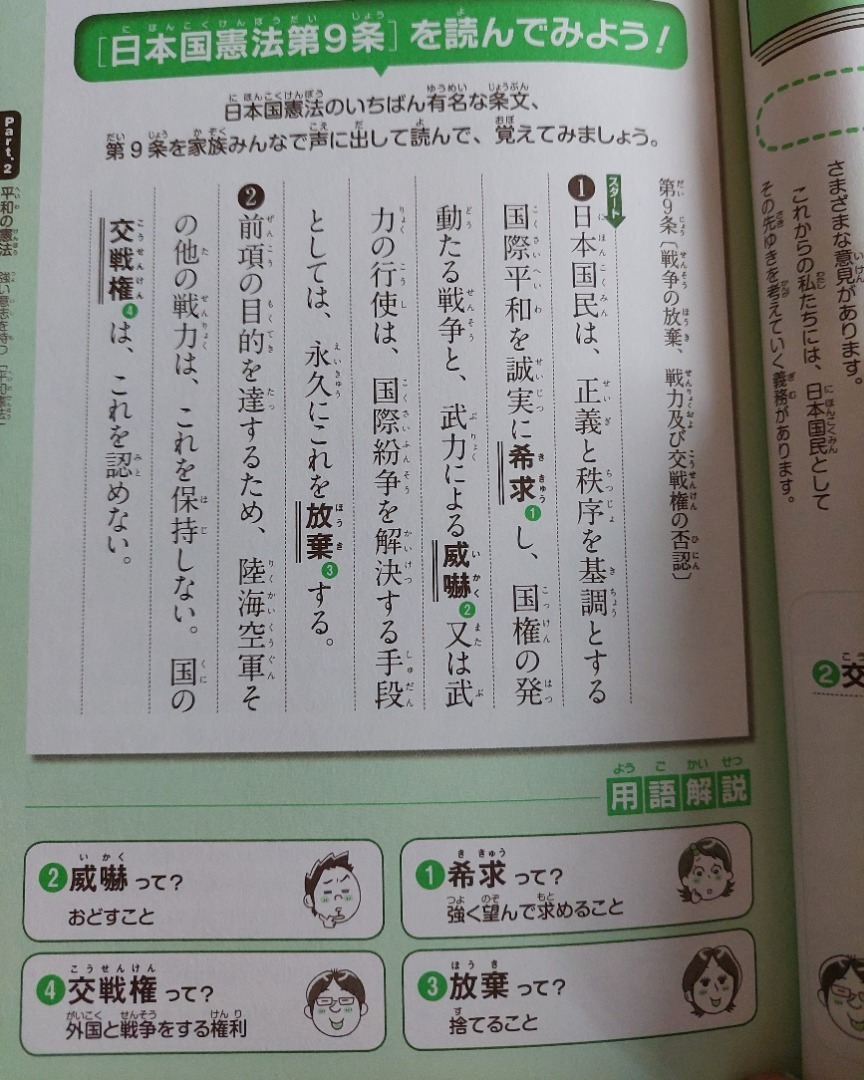 [日本国憲法第9条]を読んでみよう!
日本国憲法のいちばん有名な条文、
第9条を家族みんなで声に出して読んで、覚えてみましょう。
第9条〔戦争の放棄、戦力及び交戦権の否認〕
スタート
❶日本国民は、正義と秩序を基調とする
国際平和を誠実に希求❶し、国権の発
動たる戦争と、武力による威嚇❷又は武
力の行使は、国際紛争を解決する手段
としては、永久にこれを放棄❸する。
❷前項の目的を達するため、陸海空軍そ
の他の戦力は、これを保持しない。国の
交戦権❹は、これを認めない。
用語解説
❶希求って?
強く望んで求めること
❷威嚇って?
おどすこと
❸放棄って?
捨てること
❹交戦権って?
外国と戦争をする権利
Part.2
平和の憲法
強い意志を持つ
さまざまな意見があります。
これからの私たちには、日本国民として
その先ゆきを考えていく義務があります。
❷交